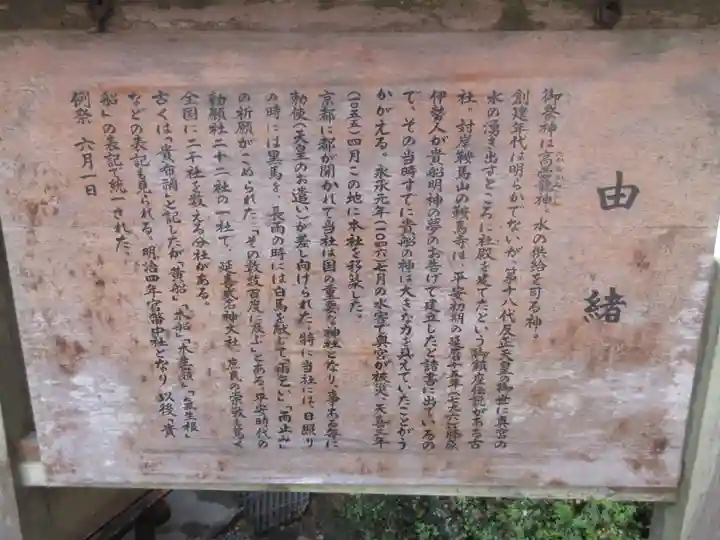 由緒
御祭神は高龗神。水の供給を司る神。
創建年代は明らかでないが、第十八代反正天皇の御世に奥宮の
水の湧き出すところに社殿を建てたという御鎮座伝説がある古
社。対岸鞍馬山の鞍馬寺は、平安初期の延暦十五年(七九六)藤原
伊勢人が貴船明神の夢のお告げで建立したと諸書に出ているの
で、その当時すでに貴船の神は大きな力を具えていたことがう
かがえる。永承元年(一〇四六)七月の水害で奥宮が被災、天喜三年
(一〇五五)四月この地に本社を移築した。
京都に都が開かれて当社は国の重要な神社となり、事ある毎に
勅使(天皇のお遣い)が差し向けられた。特に当社には、日照り
の時には黒馬を、長雨の時には白馬を献じて「雨乞い」「雨止み」
の祈願がこめられた。「その数数百度に及ぶ」とある。平安時代の
勅願社二十二社の一社で、延喜式名神大社、庶民の崇敬も篤く
全国に二千社を数える分社がある。
古くは「貴布禰」と記したが「黄船」「木船」「木生嶺」「氣生根」
などの表記も見られる。明治四年官幣中社となり、以後「貴
船」の表記で統一された。
例祭 六月一日